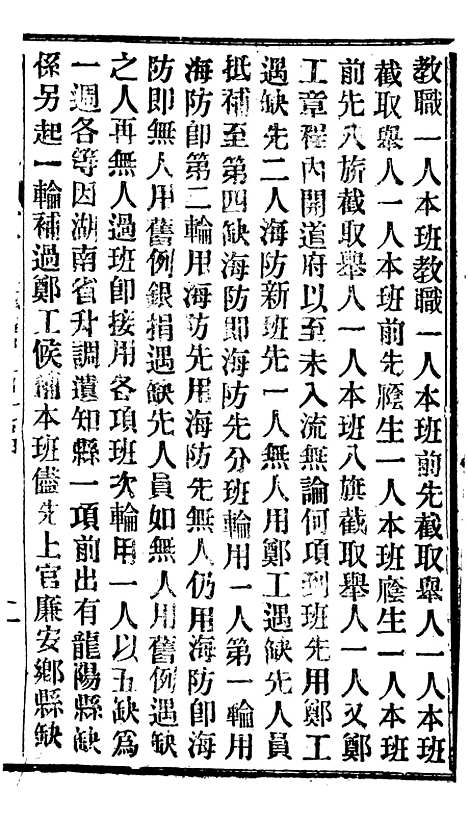 教職一人本班教職一人本班前先截取舉人一人本班
截取舉人一人本班前先廕生一人本班廕生一人本班
前先八旂截取舉人一人本班八旗截取舉人一人又鄭
工章程內開道府以至未入流無論何項到班先用鄭工
遇缺先二人海防新班先一人無人用鄭工遇缺先人員
抵補至第四缺海防即海防先分班輪用一人第一輪用
海防即第二輪用海防先用海防先無人仍用海防即海
防即無人用舊例銀捐遇缺先人員如無人用舊例遇缺
之人再無人過班即接用各項班次輪用一人以五缺為
一週各等因湖南省升調遺知縣一項前出有龍陽縣缺
係另起一輪補過鄭工候補本班儘先上官廉安鄉縣缺